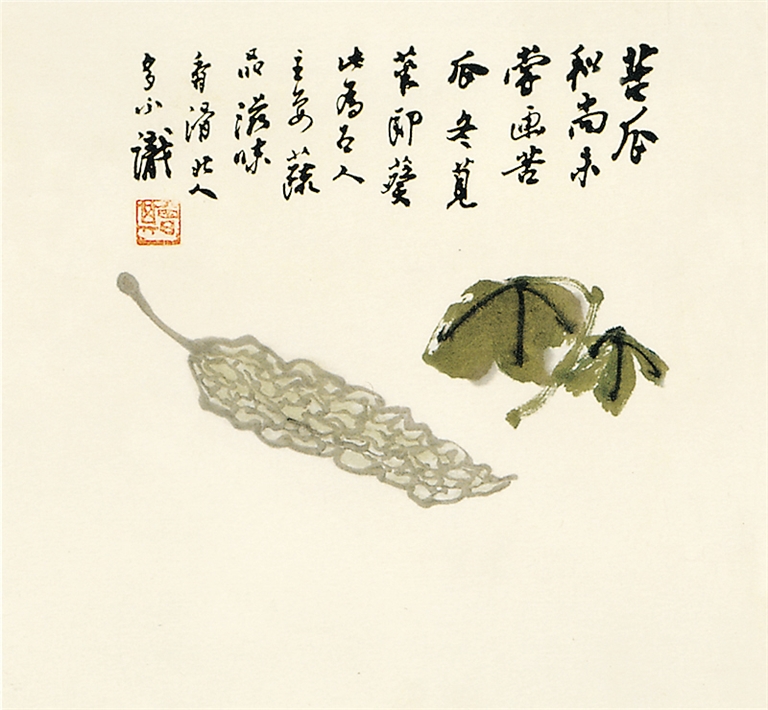 苦瓜
和尚未
嘗畫苦
瓜冬莧
菜即葵
此為古人
主要蔬
品滋味
香滑北人
多不識